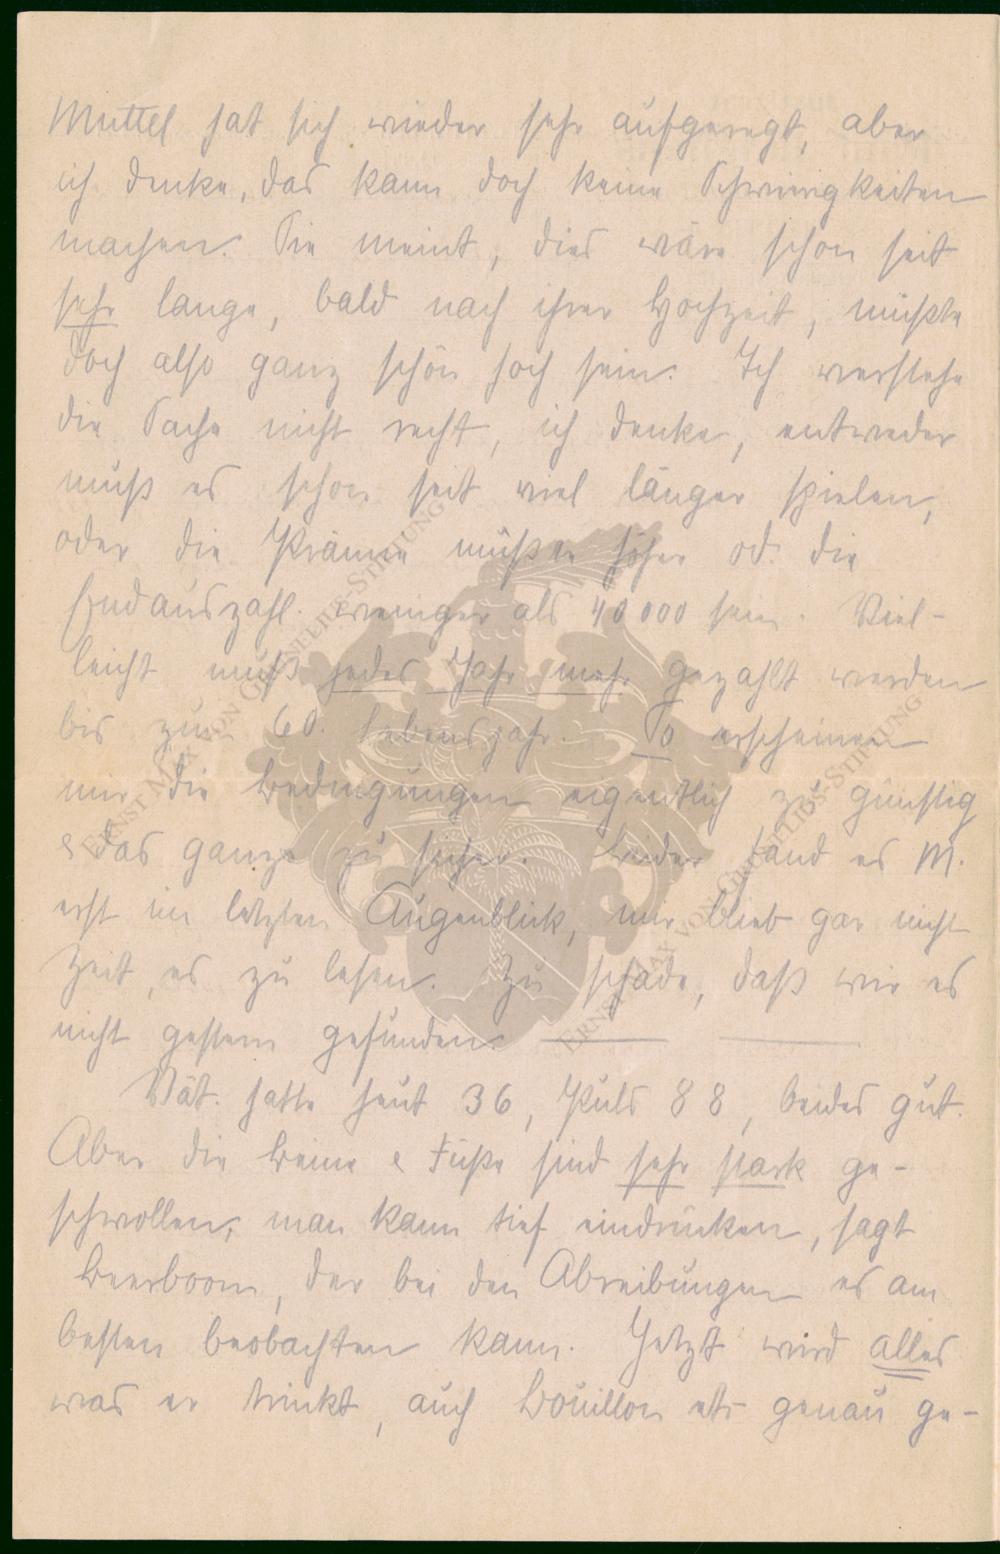 Muttel hat sich wieder sehr aufgeregt, aber
ich denke, das kann doch keine Schwierigkeiten
machen. Sie meint, dies wäre schon seit
sehr lange, bald nach ihrer Hochzeit, müßte
doch also ganz schön hoch sein. Ich verstehe
die Sache nicht recht, ich denke, entweder
muß es schon seit viel länger spielen,
oder die Prämie müßte höher od. die
Endauszahl. weniger als 40000 sein. Viel-
leicht muß jedes Jahr mehr gezahlt werden
bis zum 60. Lebensjahr. So erscheinen
mir die Bedingungen eigentlich zu günstig
& das ganze zu sicher. Leider fand es M.
erst im letzten Augenblick, mir blieb gar nicht
Zeit, es zu lesen. Zu schade, daß wir es
nicht gestern gefunden.
Vät. hatte heut 36, Puls 88, beides gut.
Aber die Beine & Füße sind sehr stark ge-
schwollen, man kann tief eindrücken, sagt
Beerboom, der bei den Abreibungen es am
besten beobachten kann. Jetzt wird alles
was er trinkt, auch Bouillon etc genau ge-
ERNST MAX VON GRUNELIUS-STIFTUNG
ERNST MAX VON GRUNELIUS-STIFTUNG